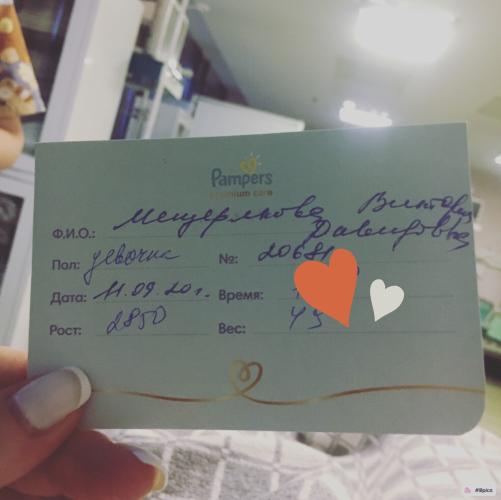 Pampers
premium care
Ф.И.О.: Мещерякова Виктория
Давидовна
Пол: девочка №: 20681
Дата: 11.09.20г. Время:
Рост: 2850 Вес: 49
#Bpics